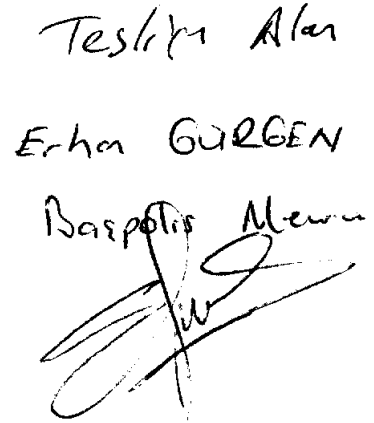 Teslim Alan
Erhan GÜRGEN
Başpolis Memuru